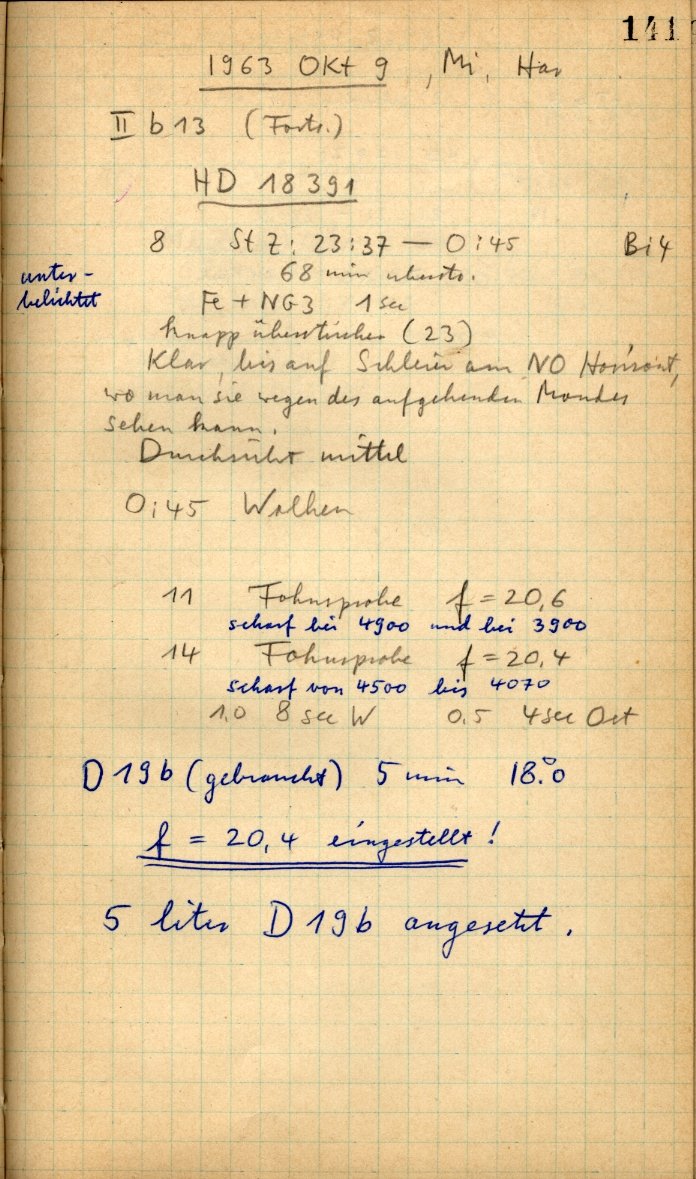 141
1963 Okt 9, Mi, Hav
II b 13 (Forts.)
HD 18391
8 St Z: 23:37 — 0:45 Bi4
68 min überstr.
unter-
belichtet
Fe + NG3 1 sec
knapp überstrichen (23)
Klar, bis auf Schleier am NO Horizont,
wo man sie wegen des aufgehenden Mondes
sehen kann.
Durchsicht mittel
0:45 Wolken
11 Fokusprobe f = 20,6
scharf bei 4900 und bei 3900
14 Fokusprobe f = 20,4
scharf von 4500 bis 4070
1.0 8 sec W 0.5 4 sec Ost
D19b (gebraucht) 5 min 18.°0
f = 20,4 eingestellt!
5 liter D19b angesetzt.